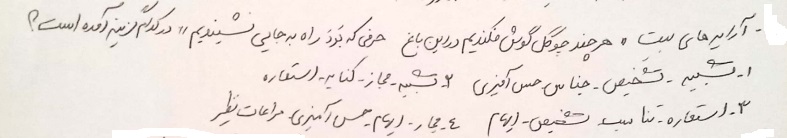 - آرایه های بیت « هر چند چو گل گوش فکندیم در این باغ حرفی که بَرَد راه به جایی نشنیدیم » در کدام گزینه آمده است؟
۱- تشبیه - تشخیص - جناس - حس آمیزی ۲- تشبیه - مجاز - کنایه - استعاره
۳- استعاره - تناسب - تشخیص - ایهام ۴- مجاز - ایهام - حس آمیزی - مراعات نظیر